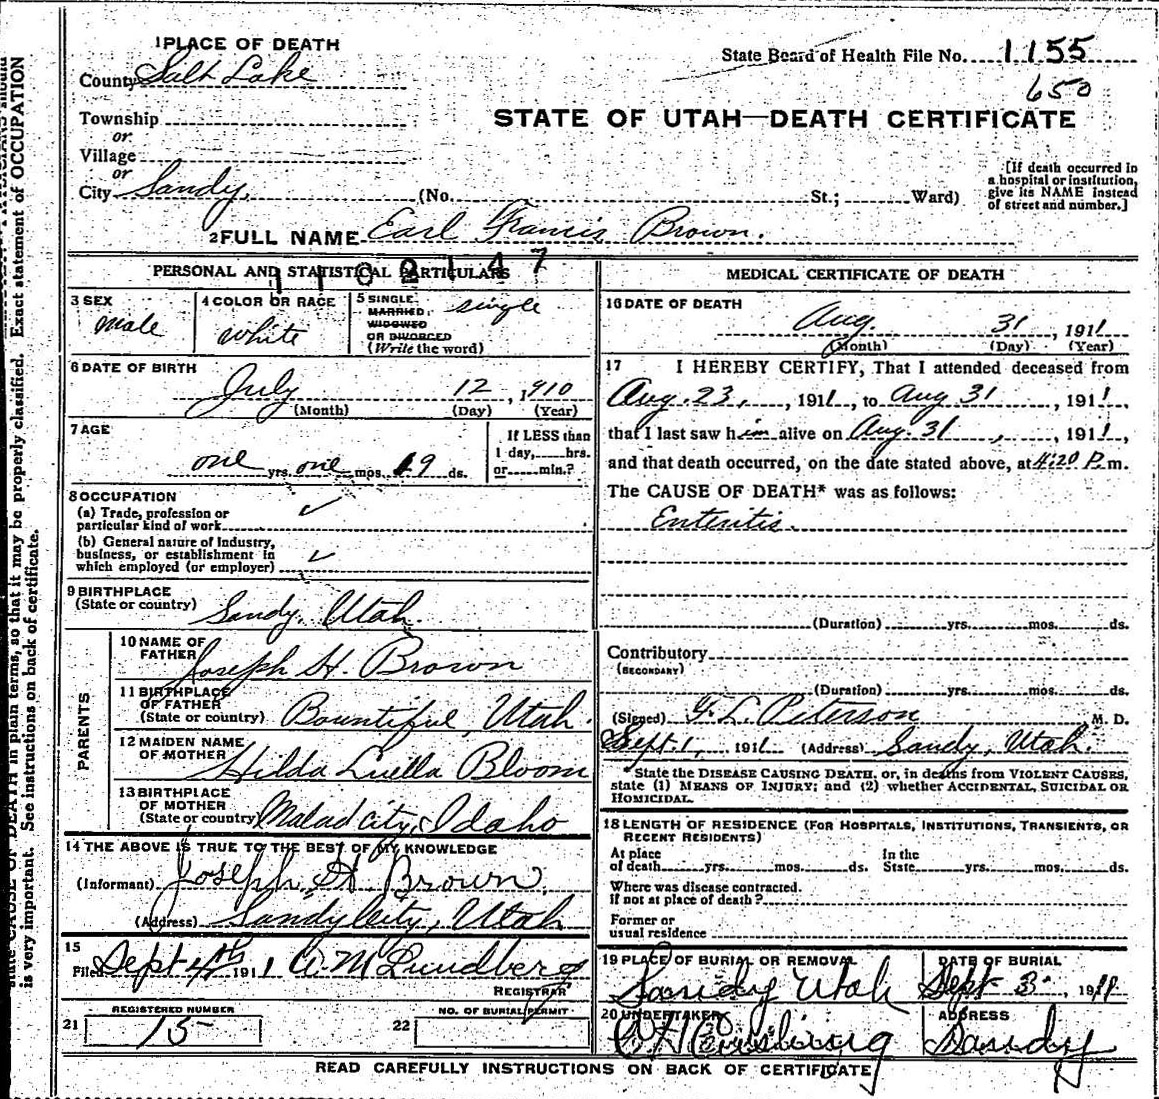 1 PLACE OF DEATH
State Board of Health File No. 1155
County Salt Lake
650
STATE OF UTAH—DEATH CERTIFICATE
Township
or
Village
or
City Sandy, (No. St.; Ward)
[If death occurred in a hospital or institution, give its NAME instead of street and number.]
2 FULL NAME Earl Francis Brown.
1102147
PERSONAL AND STATISTICAL PARTICULARS
3 SEX
male
4 COLOR OR RACE
white
5 SINGLE, MARRIED, WIDOWED OR DIVORCED (Write the word)
single
6 DATE OF BIRTH
July 12, 1910
(Month) (Day) (Year)
7 AGE
one yrs. one mos. 19 ds.
If LESS than 1 day, hrs. or min.?
8 OCCUPATION
(a) Trade, profession or particular kind of work
(b) General nature of industry, business, or establishment in which employed (or employer)
9 BIRTHPLACE
(State or country) Sandy, Utah.
PARENTS
10 NAME OF FATHER Joseph H. Brown
11 BIRTHPLACE OF FATHER (State or country) Bountiful, Utah.
12 MAIDEN NAME OF MOTHER Hilda Luella Bloom
13 BIRTHPLACE OF MOTHER (State or country) Malad city, Idaho
14 THE ABOVE IS TRUE TO THE BEST OF MY KNOWLEDGE
(Informant) Joseph H Brown,
(Address) Sandy City, Utah
15
Filed Sept 4th 1911 A M Lundberg
REGISTRAR
REGISTERED NUMBER
21 15
NO. OF BURIAL PERMIT
22
MEDICAL CERTIFICATE OF DEATH
16 DATE OF DEATH
Aug. 31, 1911
(Month) (Day) (Year)
17 I HEREBY CERTIFY, That I attended deceased from
Aug. 23, 1911, to Aug 31 1911,
that I last saw him alive on Aug. 31, 1911,
and that death occurred, on the date stated above, at 4:20 P.m.
The CAUSE OF DEATH* was as follows:
Enteritis.
(Duration) yrs. mos. ds.
Contributory
(SECONDARY)
(Duration) yrs. mos. ds.
(Signed) G. L. Peterson M. D.
Sept. 1, 1911 (Address) Sandy, Utah.
*State the DISEASE CAUSING DEATH, or, in deaths from VIOLENT CAUSES, state (1) MEANS OF INJURY; and (2) whether ACCIDENTAL, SUICIDAL OR HOMICIDAL.
18 LENGTH OF RESIDENCE (FOR HOSPITALS, INSTITUTIONS, TRANSIENTS, OR RECENT RESIDENTS)
At place of death yrs. mos. ds. In the State yrs. mos. ds.
Where was disease contracted, if not at place of death?
Former or usual residence
19 PLACE OF BURIAL OR REMOVAL
Sandy Utah
DATE OF BURIAL
Sept 3 1911
20 UNDERTAKER
ADDRESS
Sandy
READ CAREFULLY INSTRUCTIONS ON BACK OF CERTIFICATE
state CAUSE OF DEATH in plain terms, so that it may be properly classified. Exact statement of OCCUPATION
is very important. See instructions on back of certificate.